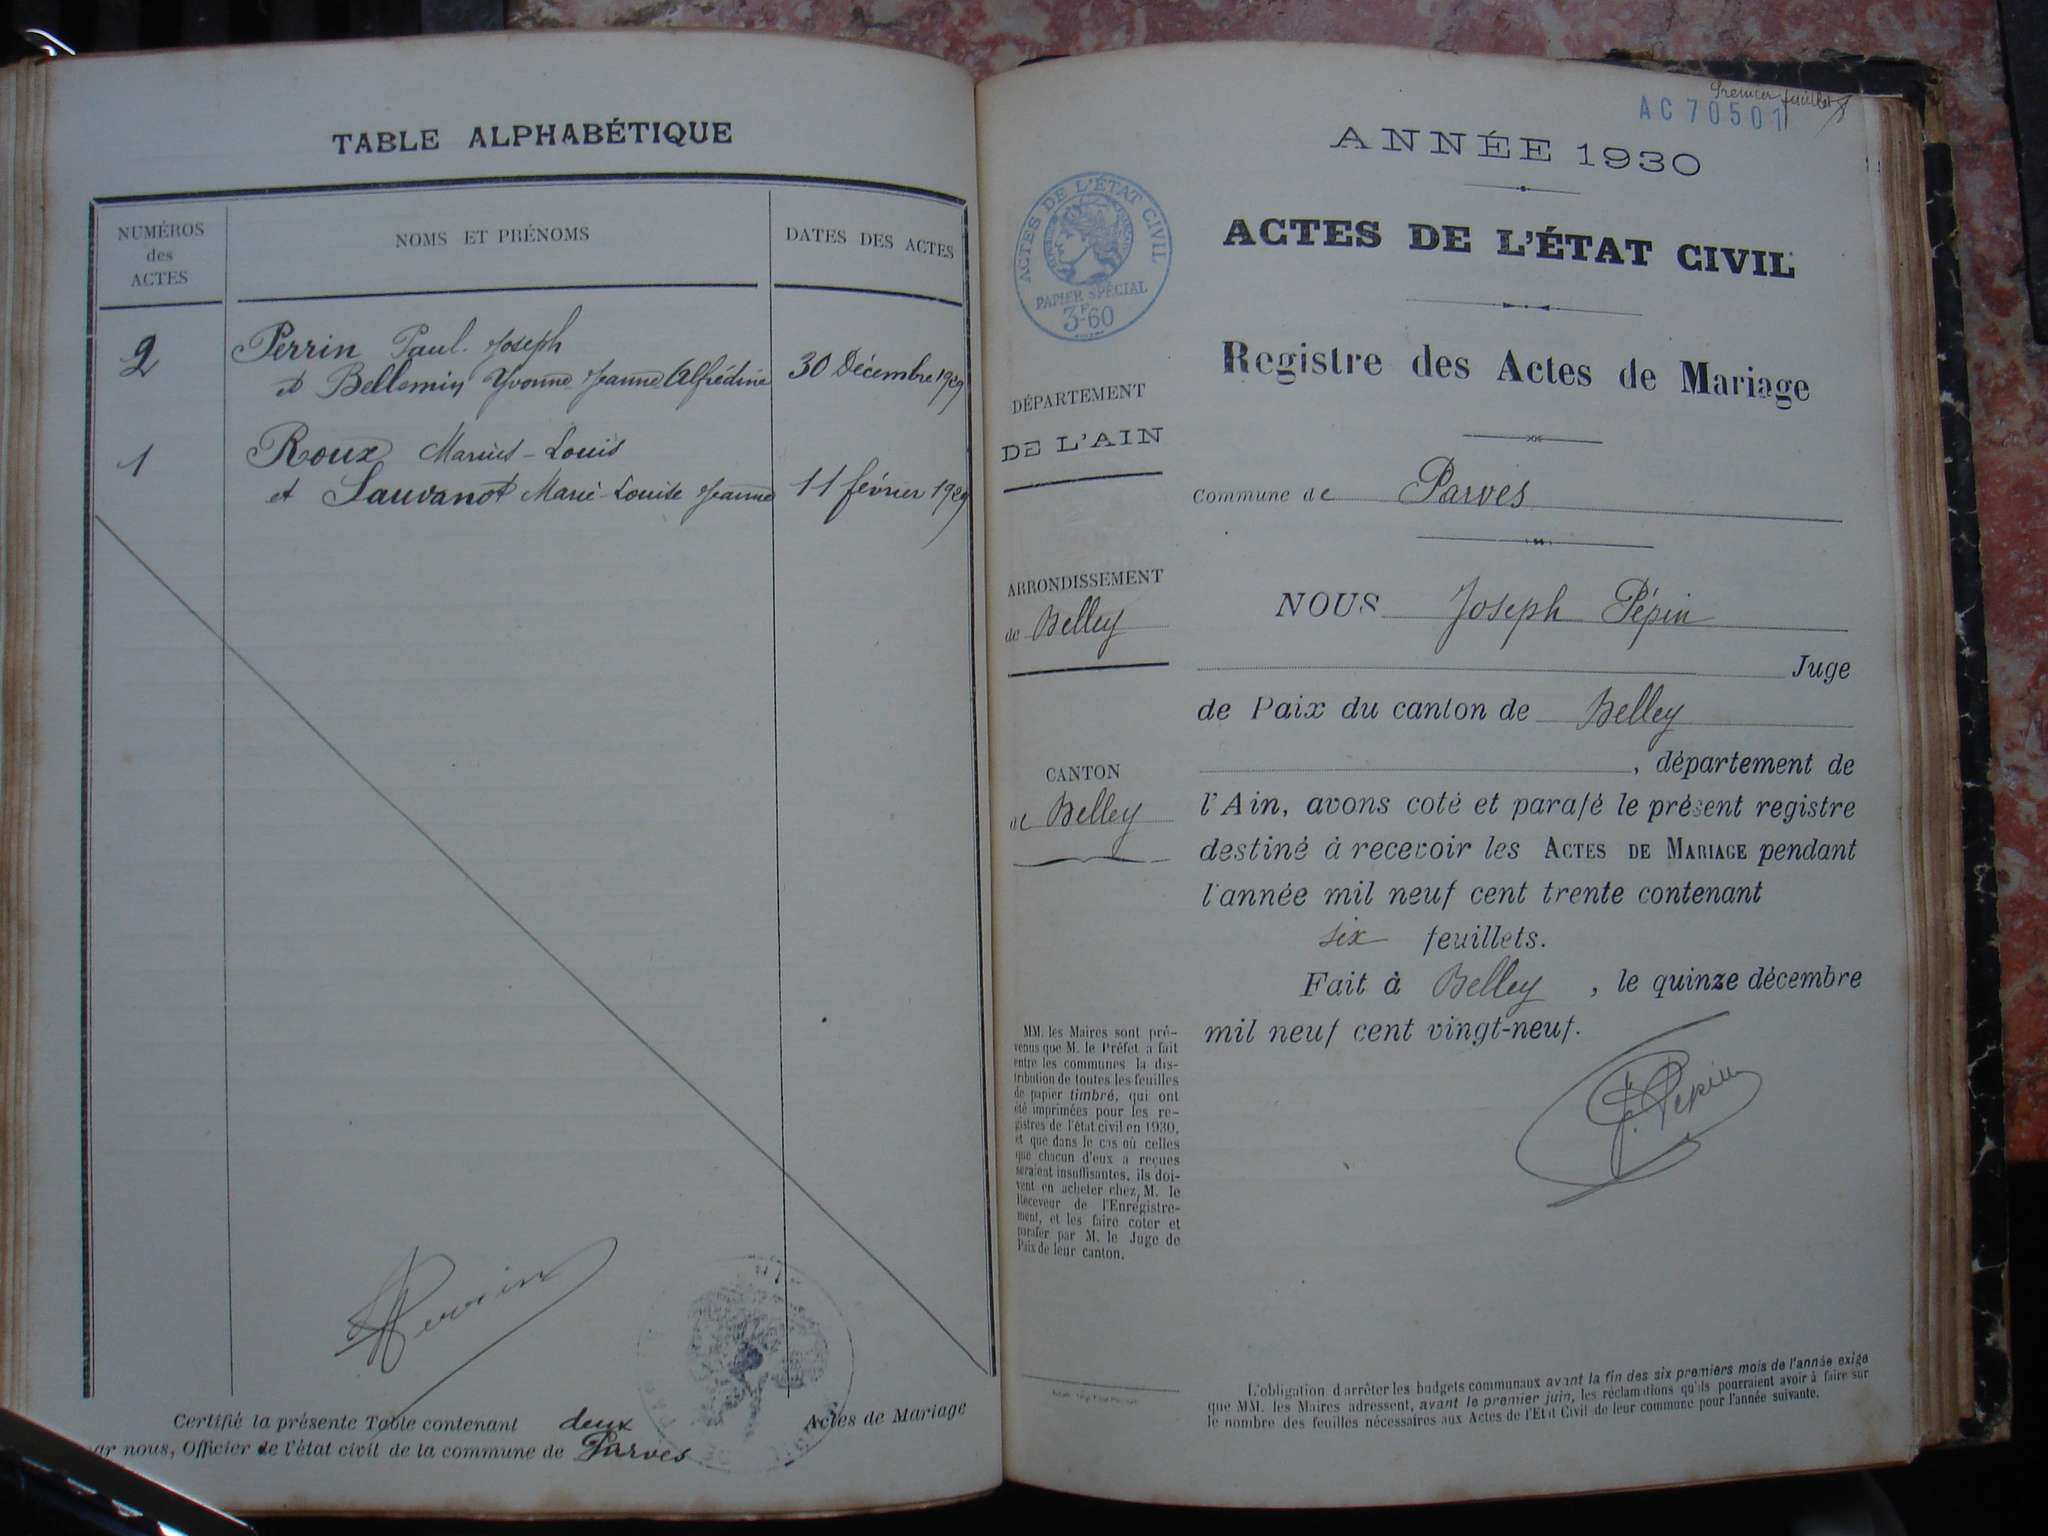 TABLE ALPHABÉTIQUE
NUMÉROS
des
ACTES
NOMS ET PRÉNOMS
DATES DES ACTES
2
Perrin Paul Joseph
et Bellemin Yvonne Jeanne Alfrédine
30 Décembre 1929
1
Roux Marius-Louis
et Sauvanot Marie-Louise Jeanne
11 février 1929
Perrin
Certifié la présente Table contenant deux Actes de Mariage
par nous, Officier de l'état civil de la commune de Parves
Premier feuillet
AC 70501
ANNÉE 1930
ACTES DE L'ÉTAT CIVIL
PAPIER SPÉCIAL
3F.60
ACTES DE L'ÉTAT CIVIL
Registre des Actes de Mariage
DÉPARTEMENT
DE L'AIN
Commune de Parves
ARRONDISSEMENT
de Belley
NOUS Joseph Pépin
Juge
de Paix du canton de Belley
CANTON
de Belley
, département de
l'Ain, avons coté et parafé le présent registre
destiné à recevoir les ACTES DE MARIAGE pendant
l'année mil neuf cent trente contenant
six feuillets.
Fait à Belley, le quinze décembre
mil neuf cent vingt-neuf.
J. Pépin
MM. les Maires sont pré-
venus que M. le Préfet a fait
entre les communes la dis-
tribution de toutes les feuilles
de papier timbré, qui ont
été imprimées pour les re-
gistres de l'état civil en 1930,
et que dans le cas où celles
que chacun d'eux a reçues
seraient insuffisantes, ils doi-
vent en acheter chez M. le
Receveur de l'Enregistre-
ment, et les faire coter et
parafer par M. le Juge de
Paix de leur canton.
L'obligation d'arrêter les budgets communaux avant la fin des six premiers mois de l'année exige
que MM. les Maires adressent, avant le premier juin, les réclamations qu'ils pourraient avoir à faire sur
le nombre des feuilles nécessaires aux Actes de l'Etat Civil de leur commune pour l'année suivante.